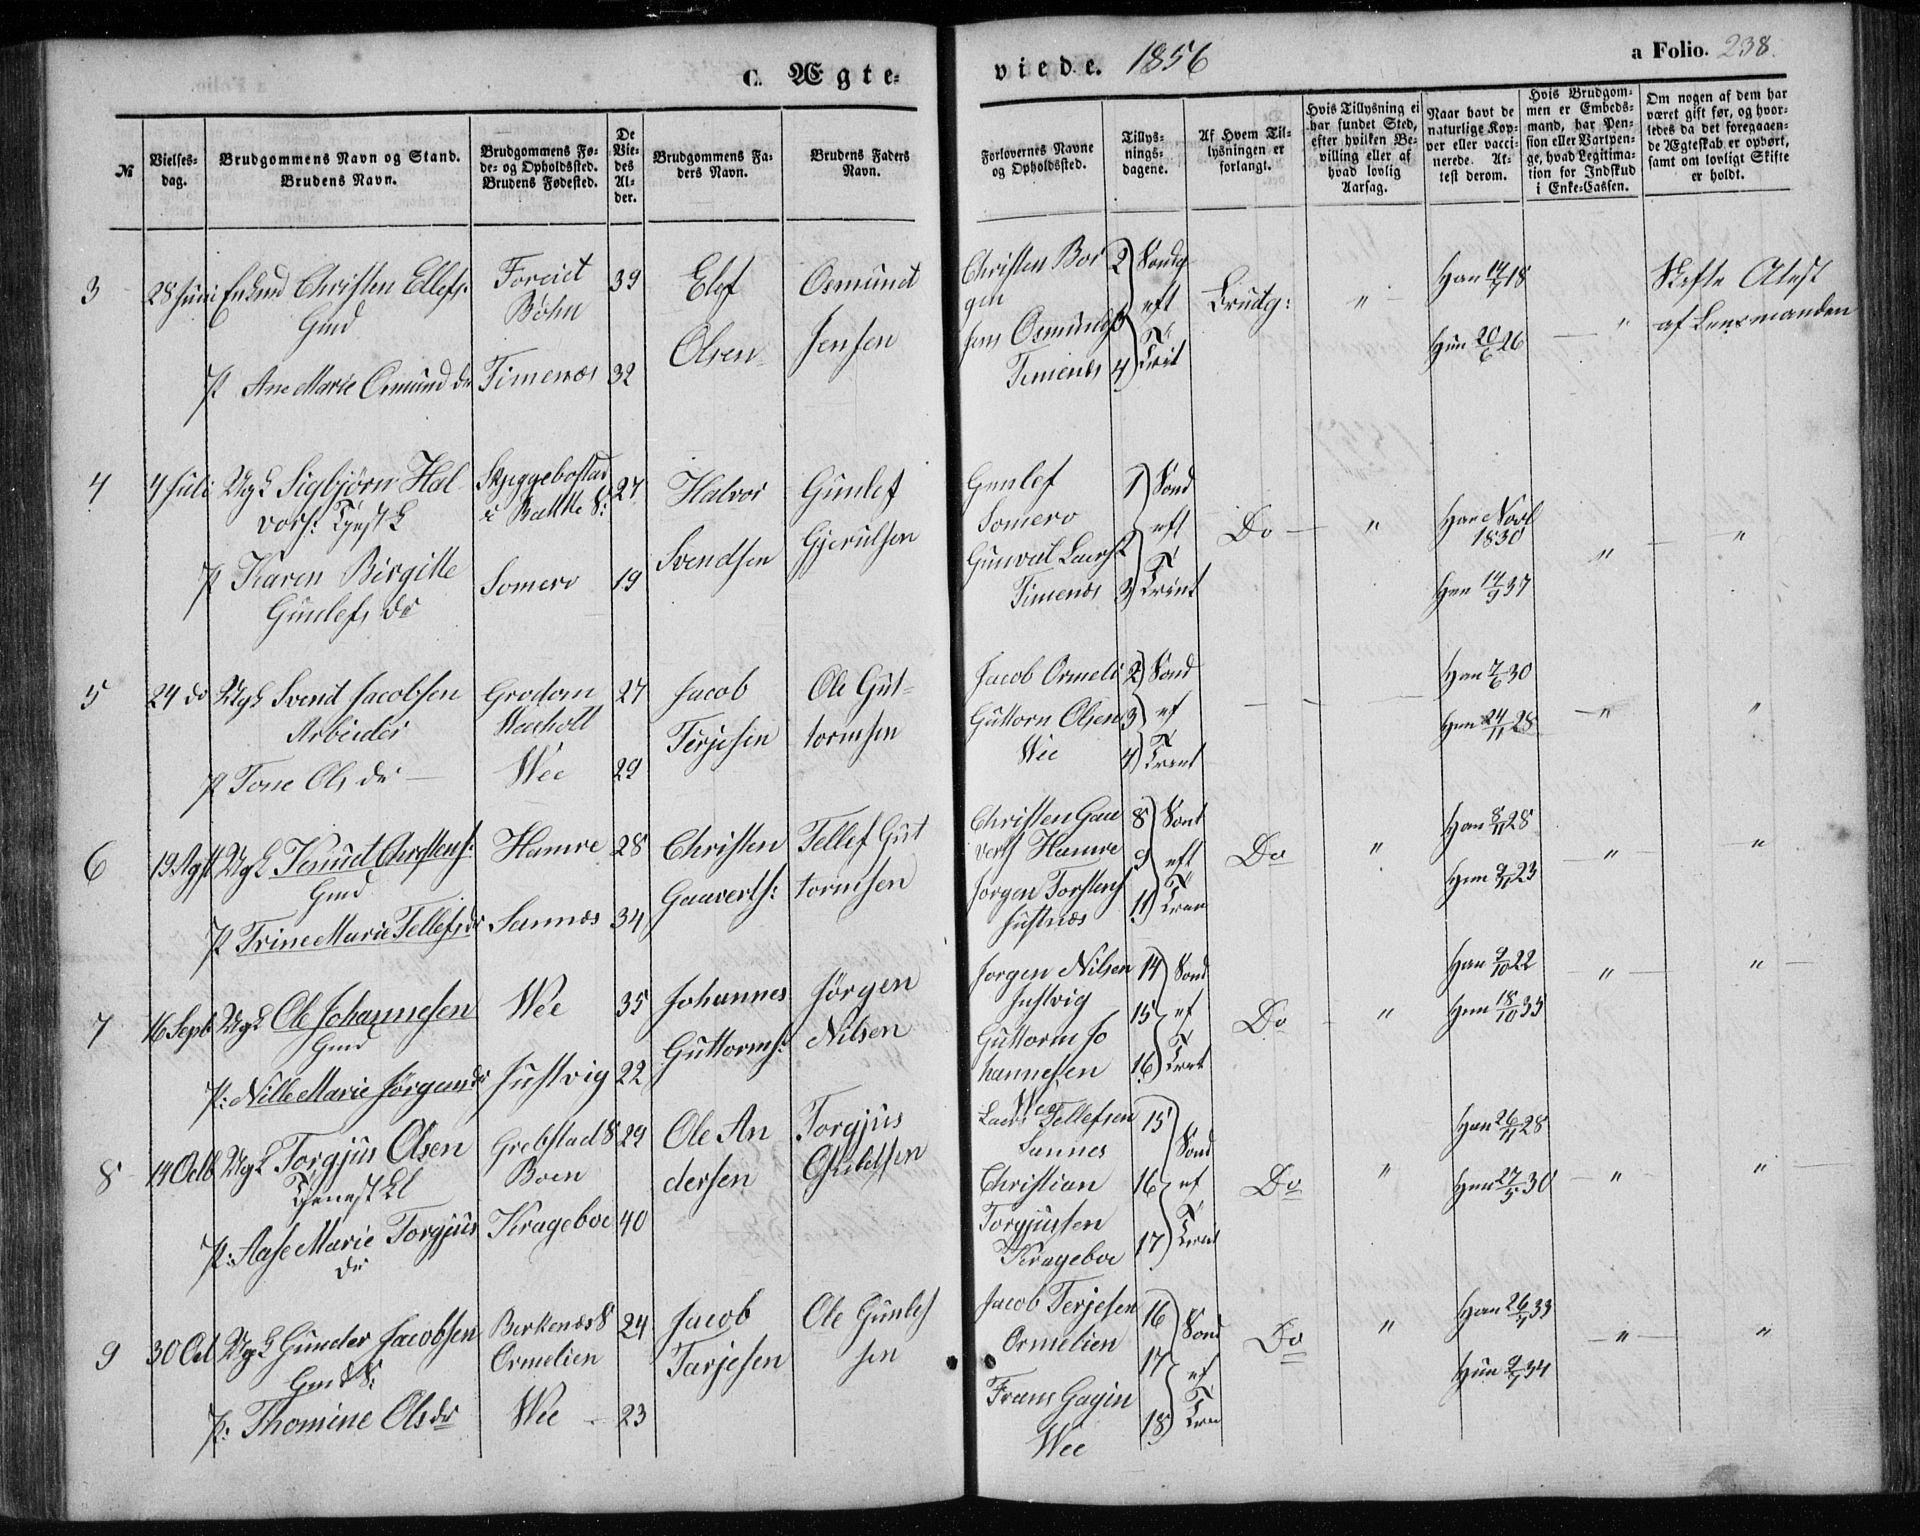 C. Ægte-
viede. 1856
a Folio. 238.
№
Vielses-
dag.
Brudgommens Navn og Stand.
Brudens Navn.
Brudgommens Fø-
de- og Opholdssted.
Brudens Fødested.
De
Vie-
des
Al-
der.
Brudgommens Fa-
ders Navn.
Brudens Faders
Navn.
Forlovernes Navne
og Opholdssted.
Tillys-
nings-
dagene.
Af Hvem Til-
lysningen er
forlangt.
Hvis Tillysning ei
har fundet Sted,
efter hvilken Be-
villing eller af
hvad lovlig
Aarsag.
Naar havt de
naturlige Kop-
per eller vacci-
nerede. At-
test derom.
Hvis Brudgom-
men er Embeds-
mand, har Pen-
sion eller Vartpen-
ge, hvad Legitima-
tion for Indskud
i Enke-Cassen.
Om nogen af dem har
været gift før, og hvor-
ledes da det foregaaen-
de Ægteskab er ophørt,
samt om lovligt Skifte
er holdt.
3 28 Juni Enkmd Christen Ellefs:
Gmd
P Ane Marie Osmund dr
Foreiet
Böhn
Timenes
39
32
Elef
Olsen
Osmund
Jensen
Christen Bor
gen
Jens Osmunds
Timenes
2 Søndg
3 eft
T
4) Trint
Brudg:
"
Han 14/7 18
Hun 20/6 26
"
Skifte Atest
af Lensmanden
4 4 Juli Ugk Sigbjørn Hal
vors: Tjenstk
P Karen Birgitte
Gunlefs dr
Skyggebostad
i Bakke S:
Somero
27
19
Halvor
Svendsen
Gunlef
Gjerulsen
Gunlef
Somero
Gunval Laurs
Timenes
1 Sond
2 eft
T
3 Trint
Do
"
Han Novb
1830
Hun 14/9 37
"
"
5 24 do Ugk Svend Jacobsen
Arbeider
P Tone Ols dr
Grodom
Wee
27
29
Jacob
Terjesen
Ole Gut-
tormsen
Jacob Ormeli
Guttorm Olsen
Wee
2) Sond
3) ef
T
4) Trint
Han 7/6 30
Hun 24/11 28
"
"
6 19 Agst Ugk Knud Christens:
Gmd
P Trine Marie Tellefs dr
Hamre
Sannes
28
34
Christen
Gauverts:
Tellef Gut
tormsen
Christen Gau
verts Hamre
Jorgen Torstens
Justnæs
8 Sont
9 eft
T
11) Trin
Do
"
Han 8/11 28
Hun 9/11 23
"
"
7 16 Sept Ugk Ole Johannesen
Gmd
P: Nille Marie Jörgens dr
Wee
Justvig
35
22
Johannes
Guttorms:
Jörgen
Nilsen
Jorgen Nilsen
Justvig
Guttorm Jo
hannesen
Wee
14 Sond
15 ef
T
16) Trint
Do
"
Han 9/10 22
Hun 18/10 35
"
"
8 14 Octb Ugk Torgjus Olsen
Tjenestkl
P: Aase Marie Torgjus
dr
Grebstad S
Boen
Krageboe
29
40
Ole An
dersen
Torgjus
Lars Tellefsen
Sannes
Christian
Torgjussen
Krageboe
15
Sond
16 ef
T
17) Trint
Do
"
Han 26/11 28
Hun 27/5 30
"
"
9 30 Oct Ugk Gunder Jacobsen
Gmd S:
P: Thomine Ols dr
Berkenæs S
Ormelien
Wee
24
23
Jacob
Tarjesen
Ole Gunlef
sen
Jacob Terjesen
Ormelien
Frans Gagin
Wee
16
Sond
17 ef
T
18) Trin
Do
"
Han 26/11 33
Hun 9/7 34
"
"